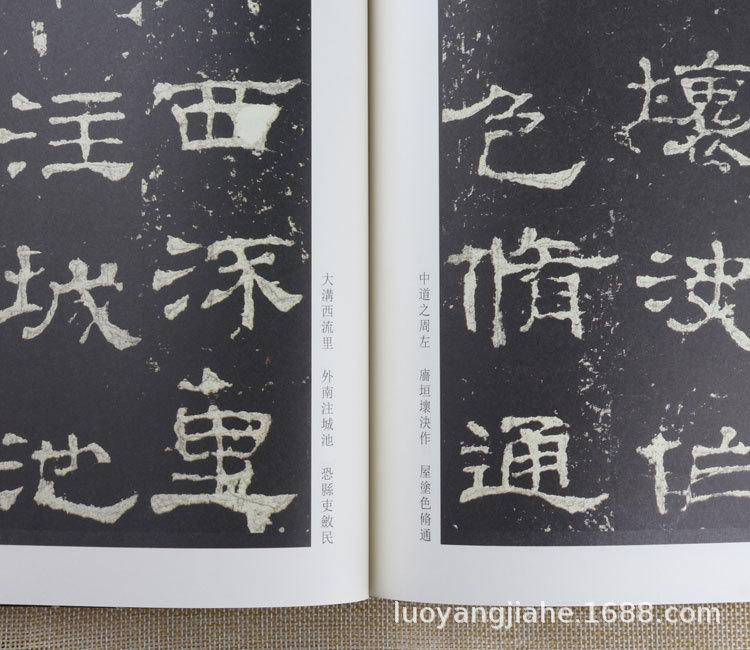 壞決作
色脩通
中道之周左 廧垣壞決作 屋塗色脩通
大溝西流里 外南注城池 恐縣吏斂民
西流里
注城池
luoyangjiahe.1688.com